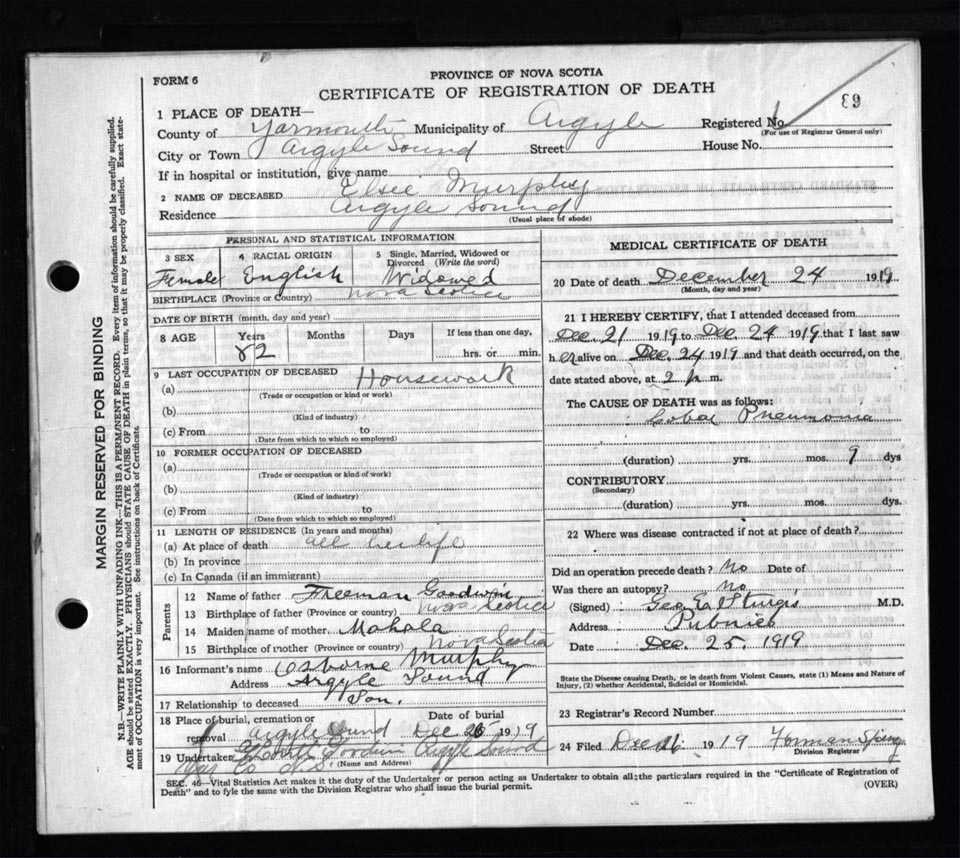 PROVINCE OF NOVA SCOTIA
FORM 6
CERTIFICATE OF REGISTRATION OF DEATH
69
1 PLACE OF DEATH—
County of Yarmouth Municipality of Argyle Registered No.
(For use of Registrar General only)
City or Town Argyle Sound Street House No.
If in hospital or institution, give name
2 NAME OF DECEASED Elsie Murphy
Residence Argyle Sound
(Usual place of abode)
PERSONAL AND STATISTICAL INFORMATION
3 SEX 4 RACIAL ORIGIN 5 Single, Married, Widowed or Divorced (Write the word)
Female English Widowed
BIRTHPLACE (Province or Country) Nova Scotia
DATE OF BIRTH (month, day and year)
8 AGE Years Months Days If less than one day,
82 hrs. or min.
9 LAST OCCUPATION OF DECEASED
(a) Housework
(Trade or occupation or kind or work)
(b)
(Kind of industry)
(c) From to
(Date from which to which so employed)
10 FORMER OCCUPATION OF DECEASED
(a)
(Trade or occupation or kind of work)
(b)
(Kind of industry)
(c) From to
(Date from which to which so employed)
11 LENGTH OF RESIDENCE (In years and months)
(a) At place of death all her life
(b) In province
(c) In Canada (if an immigrant)
Parents
12 Name of father Freeman Goodwin
13 Birthplace of father (Province or country) Nova Scotia
14 Maiden name of mother Mahala
15 Birthplace of mother (Province or country) Nova Scotia
16 Informant's name Osborne Murphy
Address Argyle Sound
17 Relationship to deceased Son.
18 Place of burial, cremation or removal Argyle Sound Date of burial Dec 26 1919
19 Undertaker Goodwin Argyle Sound
Yar Co N.S. (Name and Address)
MEDICAL CERTIFICATE OF DEATH
20 Date of death December 24 1919
(Month, day and year)
21 I HEREBY CERTIFY, that I attended deceased from
Dec. 21 1919 to Dec. 24 1919 that I last saw
her alive on Dec. 24 1919 and that death occurred, on the
date stated above, at 2 p. m.
The CAUSE OF DEATH was as follows:
Lobar Pneumonia
(duration) yrs. mos. 9 dys
CONTRIBUTORY
(Secondary)
(duration) yrs. mos. dys.
22 Where was disease contracted if not at place of death?
Did an operation precede death? No Date of
Was there an autopsy? No
(Signed) Sturgis M.D.
Address Pubnico
Date Dec. 25, 1919
State the Disease causing Death, or in death from Violent Causes, state (1) Means and Nature of
Injury, (2) whether Accidental, Suicidal or Homicidal.
23 Registrar's Record Number
24 Filed Dec 26 1919 Forman
Division Registrar
SEC. 46—Vital Statistics Act makes it the duty of the Undertaker or person acting as Undertaker to obtain all the particulars required in the "Certificate of Registration of
Death" and to fyle the same with the Division Registrar who shall issue the burial permit.
(OVER)
MARGIN RESERVED FOR BINDING
N.B.—WRITE PLAINLY WITH UNFADING INK—THIS IS A PERMANENT RECORD. Every item of information should be carefully supplied.
AGE should be stated EXACTLY. PHYSICIANS should STATE CAUSE OF DEATH in plain terms, so that it may be properly classified. Exact state-
ment of OCCUPATION is very important. See instructions on back of Certificate.